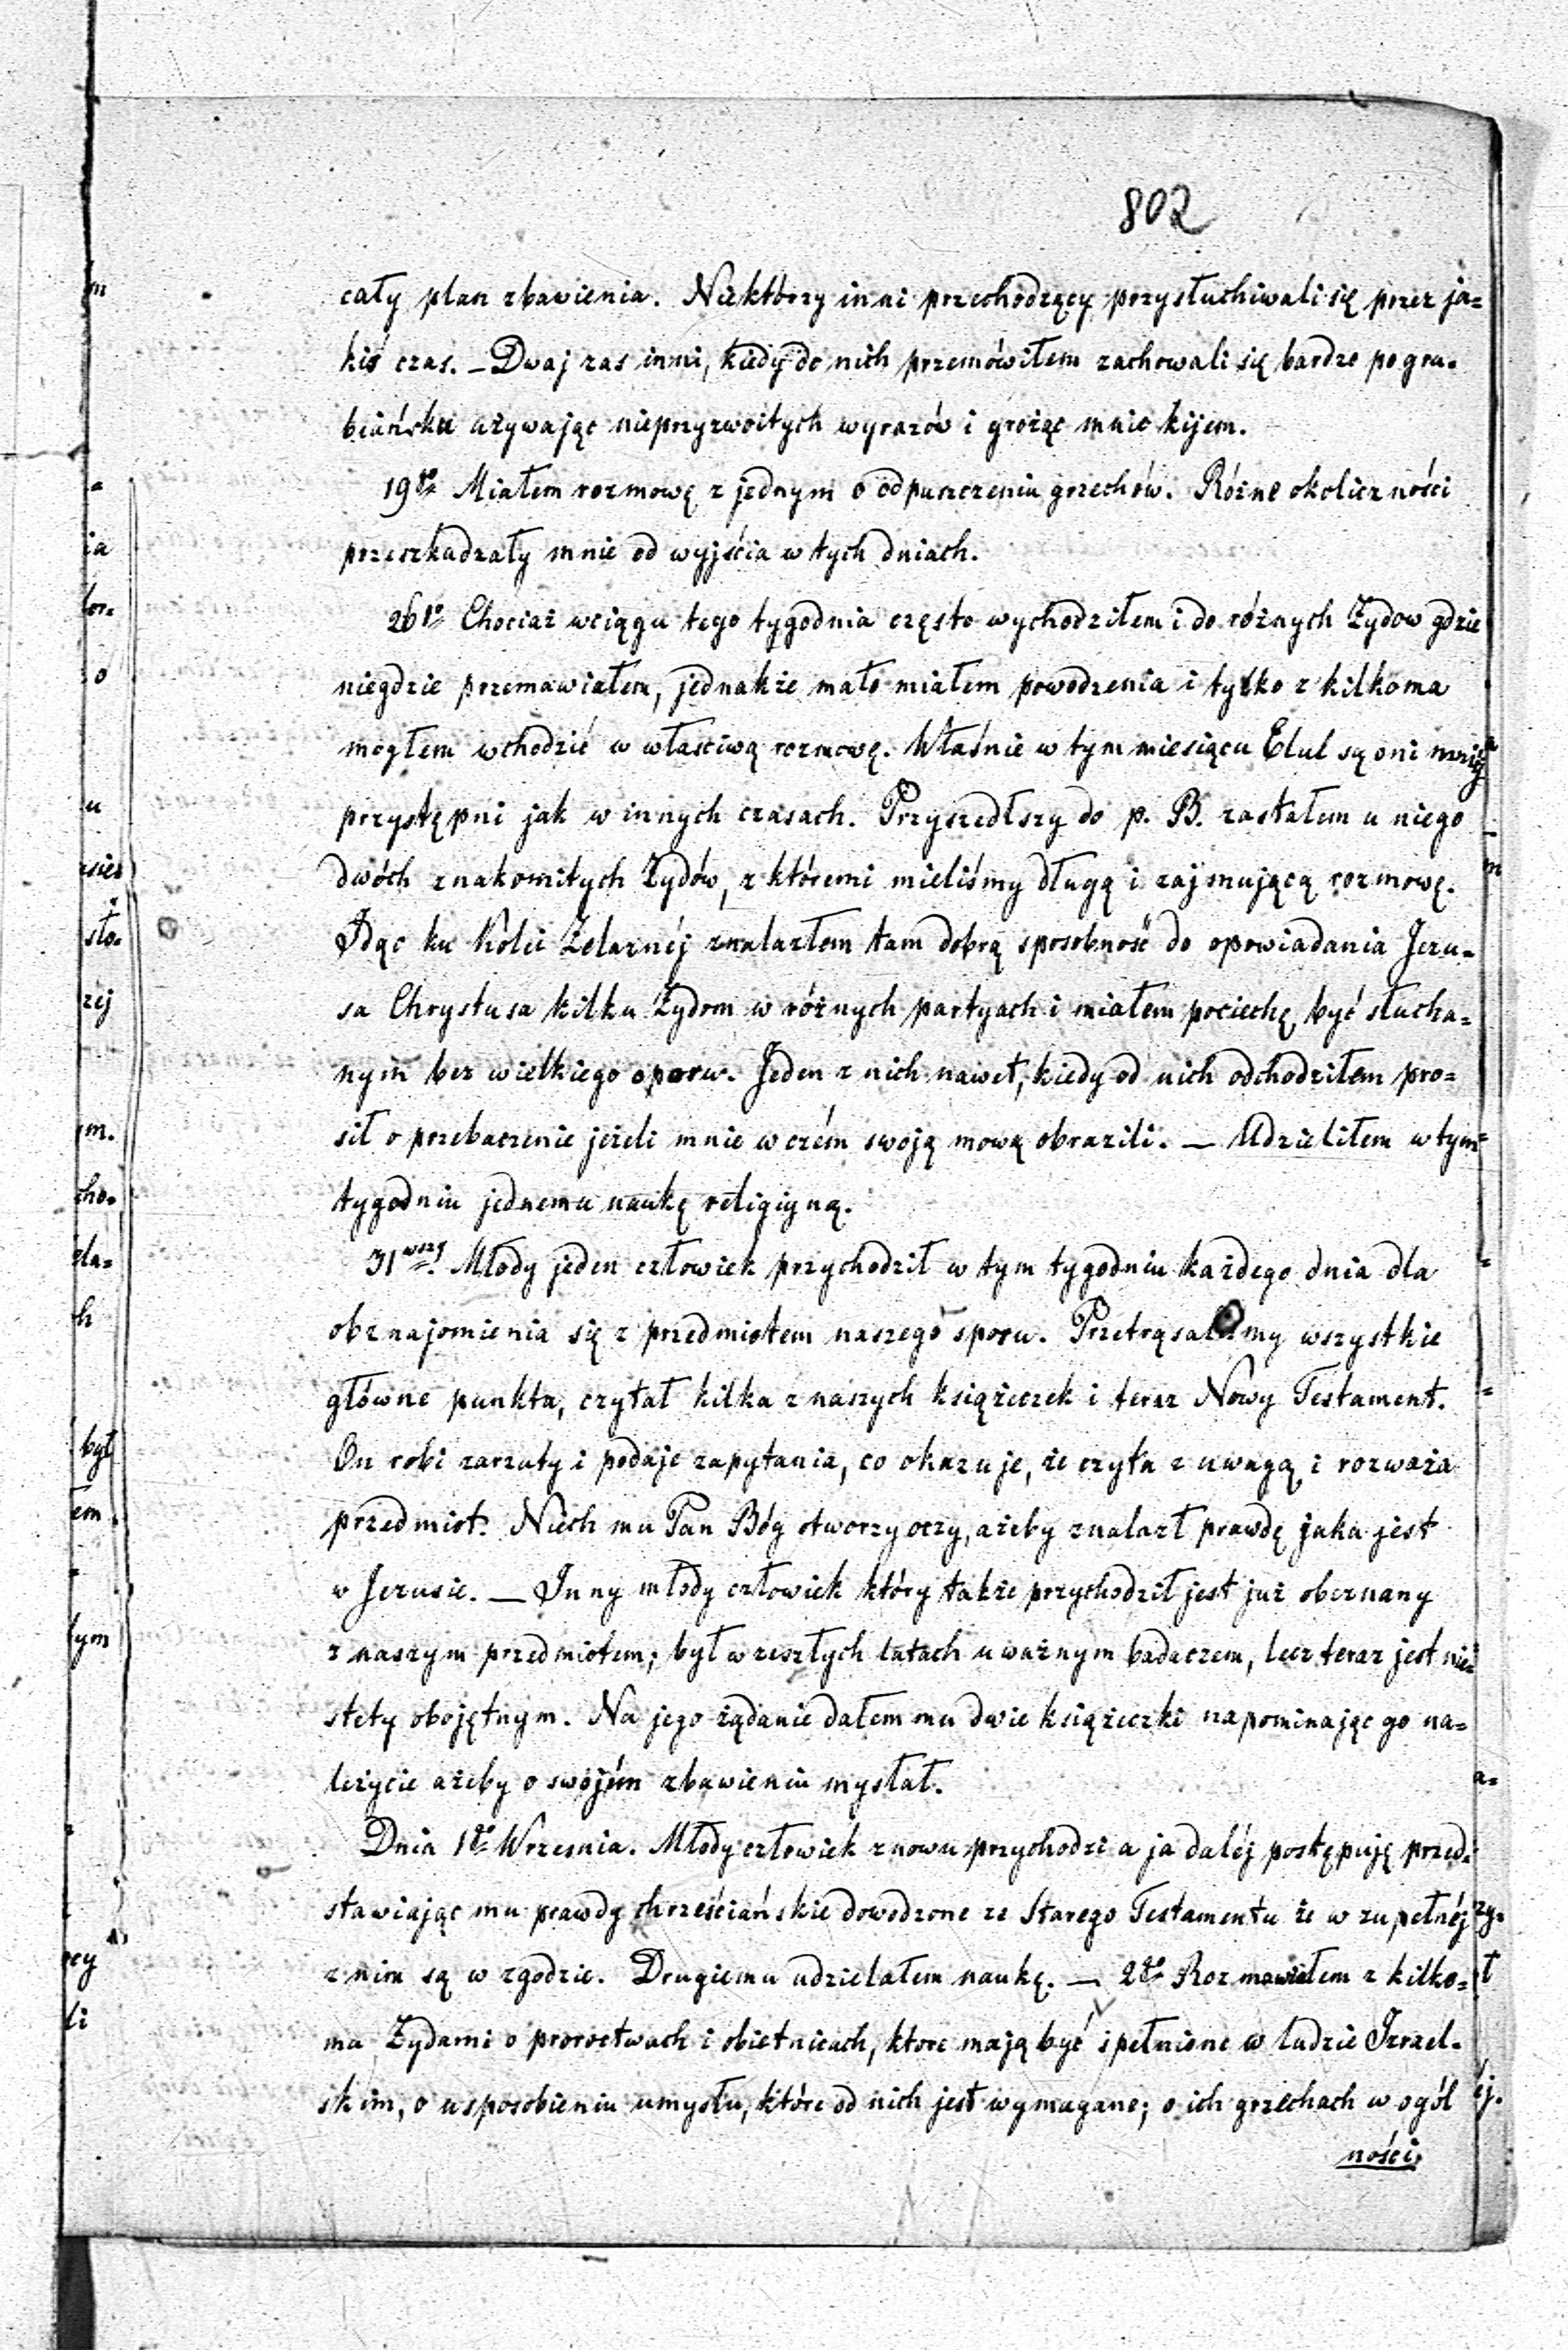 802
cały plan zbawienia. Niektórzy inni przechodzący przysłuchiwali się przez ja=
kiś czas. – Dwaj zas inni, kiedy do nich przemówiłem zachowali się bardzo po gru=
biańsku używając nieprzyzwoitych wyrazów i grożąc mnie kijem.
19go Miałem rozmowę z jednym o odpuszczeniu grzechów. Różne okoliczności
przeszkadzały mnie od wyjścia w tych dniach.
26go Chociaż wciągu tego tygodnia często wychodziłem i do różnych Żydow gdzie
niegdzie przemawiałem, jednakże mało miałem powodzenia i tylko z kilkoma
mogłem wchodzić w właściwą rozmowę. Właśnie w tym miesiącu Elul są oni mniéj
przystępni jak w innych czasach. Przyszedłszy do p. B. zastałem u niego
dwóch znakomitych Żydów, z któremi mieliśmy długą i zajmującą rozmowę.
Idąc ku Kolei Żelaznéj znalazłem tam dobrą sposobność do opowiadania Jezu=
sa Chrystusa kilku Żydom w różnych partyach i miałem pociechę być słucha=
nym bez wielkiego oporu. Jeden z nich nawet, kiedy od nich odchodziłem pro=
sił o przebaczenie jeżeli mnie w czém swoją mową obrazili. — Udzieliłem w tym
tygodniu jednemu naukę religijną.
31wszy. Młody jeden człowiek przychodził w tym tygodniu każdego dnia dla
obznajomienia się z przedmiotem naszego sporu. Przetrząsaliśmy wszystkie
główne punkta, czytał kilka z naszych książeczek i teraz Nowy Testament.
On robi zarzuty i podaje zapytania, co okazuje, że czyta z uwagą i rozważa
przedmiot. Niech mu Pan Bóg otworzy oczy, ażeby znalazł prawdę jaka jest
w Jezusie. — Inny młody człowiek który także przychodził jest już obeznany
z naszym przedmiotem; był w zeszłych latach uważnym badaczem, lecz teraz jest nie=
stety obojętnym. Na jego żądanie dałem mu dwie książeczki napominając go na=
leżycie ażeby o swojém zbawieniu myslał.
Dnia 1go Wrzesnia. Młody człowiek znowu przychodzi a ja daléj postępuję przed=
stawiając mu prawdy chrześciańskie dowodzone ze Starego Testamentu że w zupełnéj
z nim są w zgodzie. Drugiemu udzielałem naukę. — 2go Rozmawiałem z kilko=
ma Żydami o proroctwach i obietnicach, ktore mają być spełnione w ludzie Izrael=
skim, o usposobieniu umysłu, które od nich jest wymagane; o ich grzechach w ogól
ności